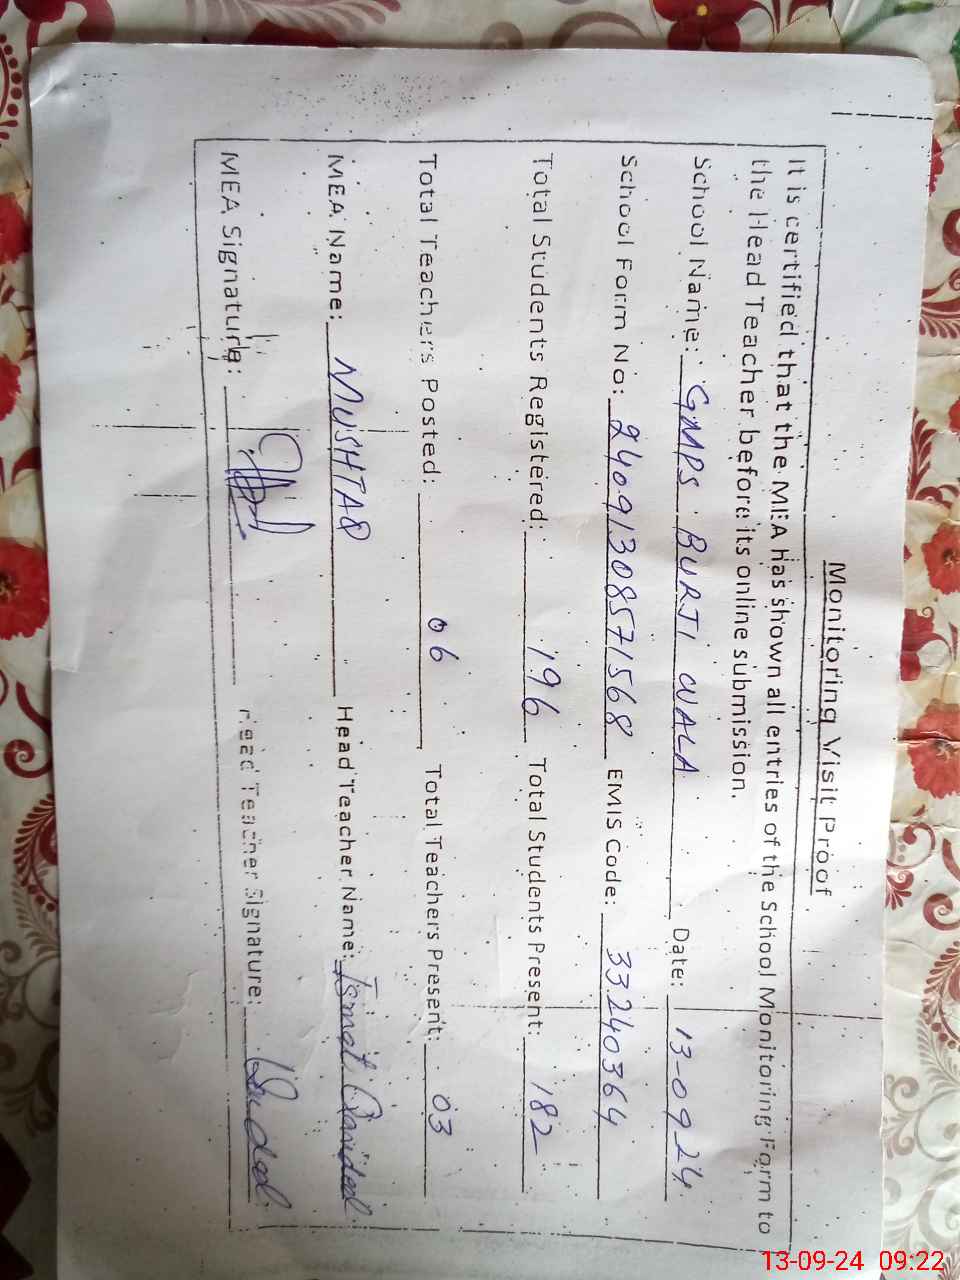 Monitoring Visit Proof
It is certified that the MEA has shown all entries of the School Monitoring Form to
the Head Teacher before its online submission.
School Name: GMPS BURJI WALA Date: 13-09-24
School Form No: 24091308571568 EMIS Code: 33240364
Total Students Registered: 196 Total Students Present: 182
Total Teachers Posted: 06 Total Teachers Present: 03
MEA Name: MUSHTAQ Head Teacher Name: Ismat
MEA Signature: Head Teacher Signature:
13-09-24 09:22